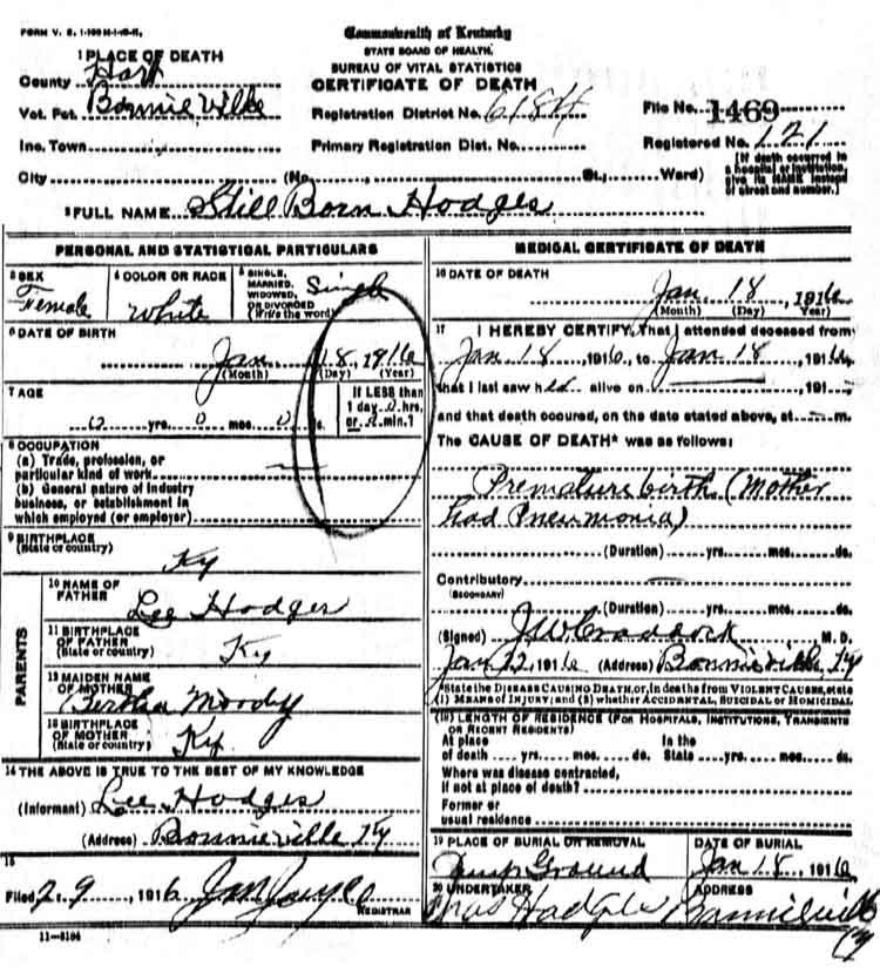 FORM V. S. 1-
Commonwealth of Kentucky
STATE BOARD OF HEALTH.
BUREAU OF VITAL STATISTICS
CERTIFICATE OF DEATH
1 PLACE OF DEATH
County Hart
Vot. Pct. Bonnieville
Registration District No. 6184
File No. 1469
Inc. Town
Primary Registration Dist. No.
Registered No. 121
City (No. St., Ward)
[If death occurred in a hospital or institution, give its NAME instead of street and number.]
2 FULL NAME Still Born Hodges
PERSONAL AND STATISTICAL PARTICULARS
3 SEX Female
4 COLOR OR RACE White
5 SINGLE, MARRIED, WIDOWED, OR DIVORCED (Write the word) Single
6 DATE OF BIRTH
Jan 18, 1916
(Month) (Day) (Year)
7 AGE
0 yrs. 0 mos. 0 ds.
If LESS than 1 day 0 hrs. or 0 min.?
8 OCCUPATION
(a) Trade, profession, or
particular kind of work
(b) General nature of industry
business, or establishment in
which employed (or employer)
9 BIRTHPLACE
(State or country)
Ky
PARENTS
10 NAME OF FATHER Lee Hodges
11 BIRTHPLACE OF FATHER (State or country) Ky
12 MAIDEN NAME OF MOTHER Bertha Moody
13 BIRTHPLACE OF MOTHER (State or country) Ky
14 THE ABOVE IS TRUE TO THE BEST OF MY KNOWLEDGE
(Informant) Lee Hodges
(Address) Bonnieville Ky
15
Filed 2-9, 1916
REGISTRAR
11-
MEDICAL CERTIFICATE OF DEATH
16 DATE OF DEATH
Jan. 18, 1916
(Month) (Day) Year)
17 I HEREBY CERTIFY, That I attended deceased from
Jan 18, 1916, to Jan 18, 1916,
that I last saw her alive on , 191
and that death occured, on the date stated above, at m.
The CAUSE OF DEATH* was as follows:
Premature birth (Mother
had Pneumonia)
(Duration) yrs. mos. ds.
Contributory
(SECONDARY)
(Duration) yrs. mos. ds.
(Signed) J W Craddock M. D.
Jan 22, 1916 (Address) Bonnieville, Ky
*State the DISEASE CAUSING DEATH, or, in deaths from VIOLENT CAUSES, state
(1) MEANS of INJURY; and (2) whether ACCIDENTAL, SUICIDAL or HOMICIDAL
(18) LENGTH OF RESIDENCE (FOR HOSPITALS, INSTITUTIONS, TRANSIENTS
OR RECENT RESIDENTS)
At place of death yrs. mos. ds. In the State yrs. mos. ds.
Where was disease contracted,
if not at place of death?
Former or
usual residence
19 PLACE OF BURIAL OR REMOVAL Ground
DATE OF BURIAL Jan 18, 1916
20 UNDERTAKER
ADDRESS Bonnieville
Ky